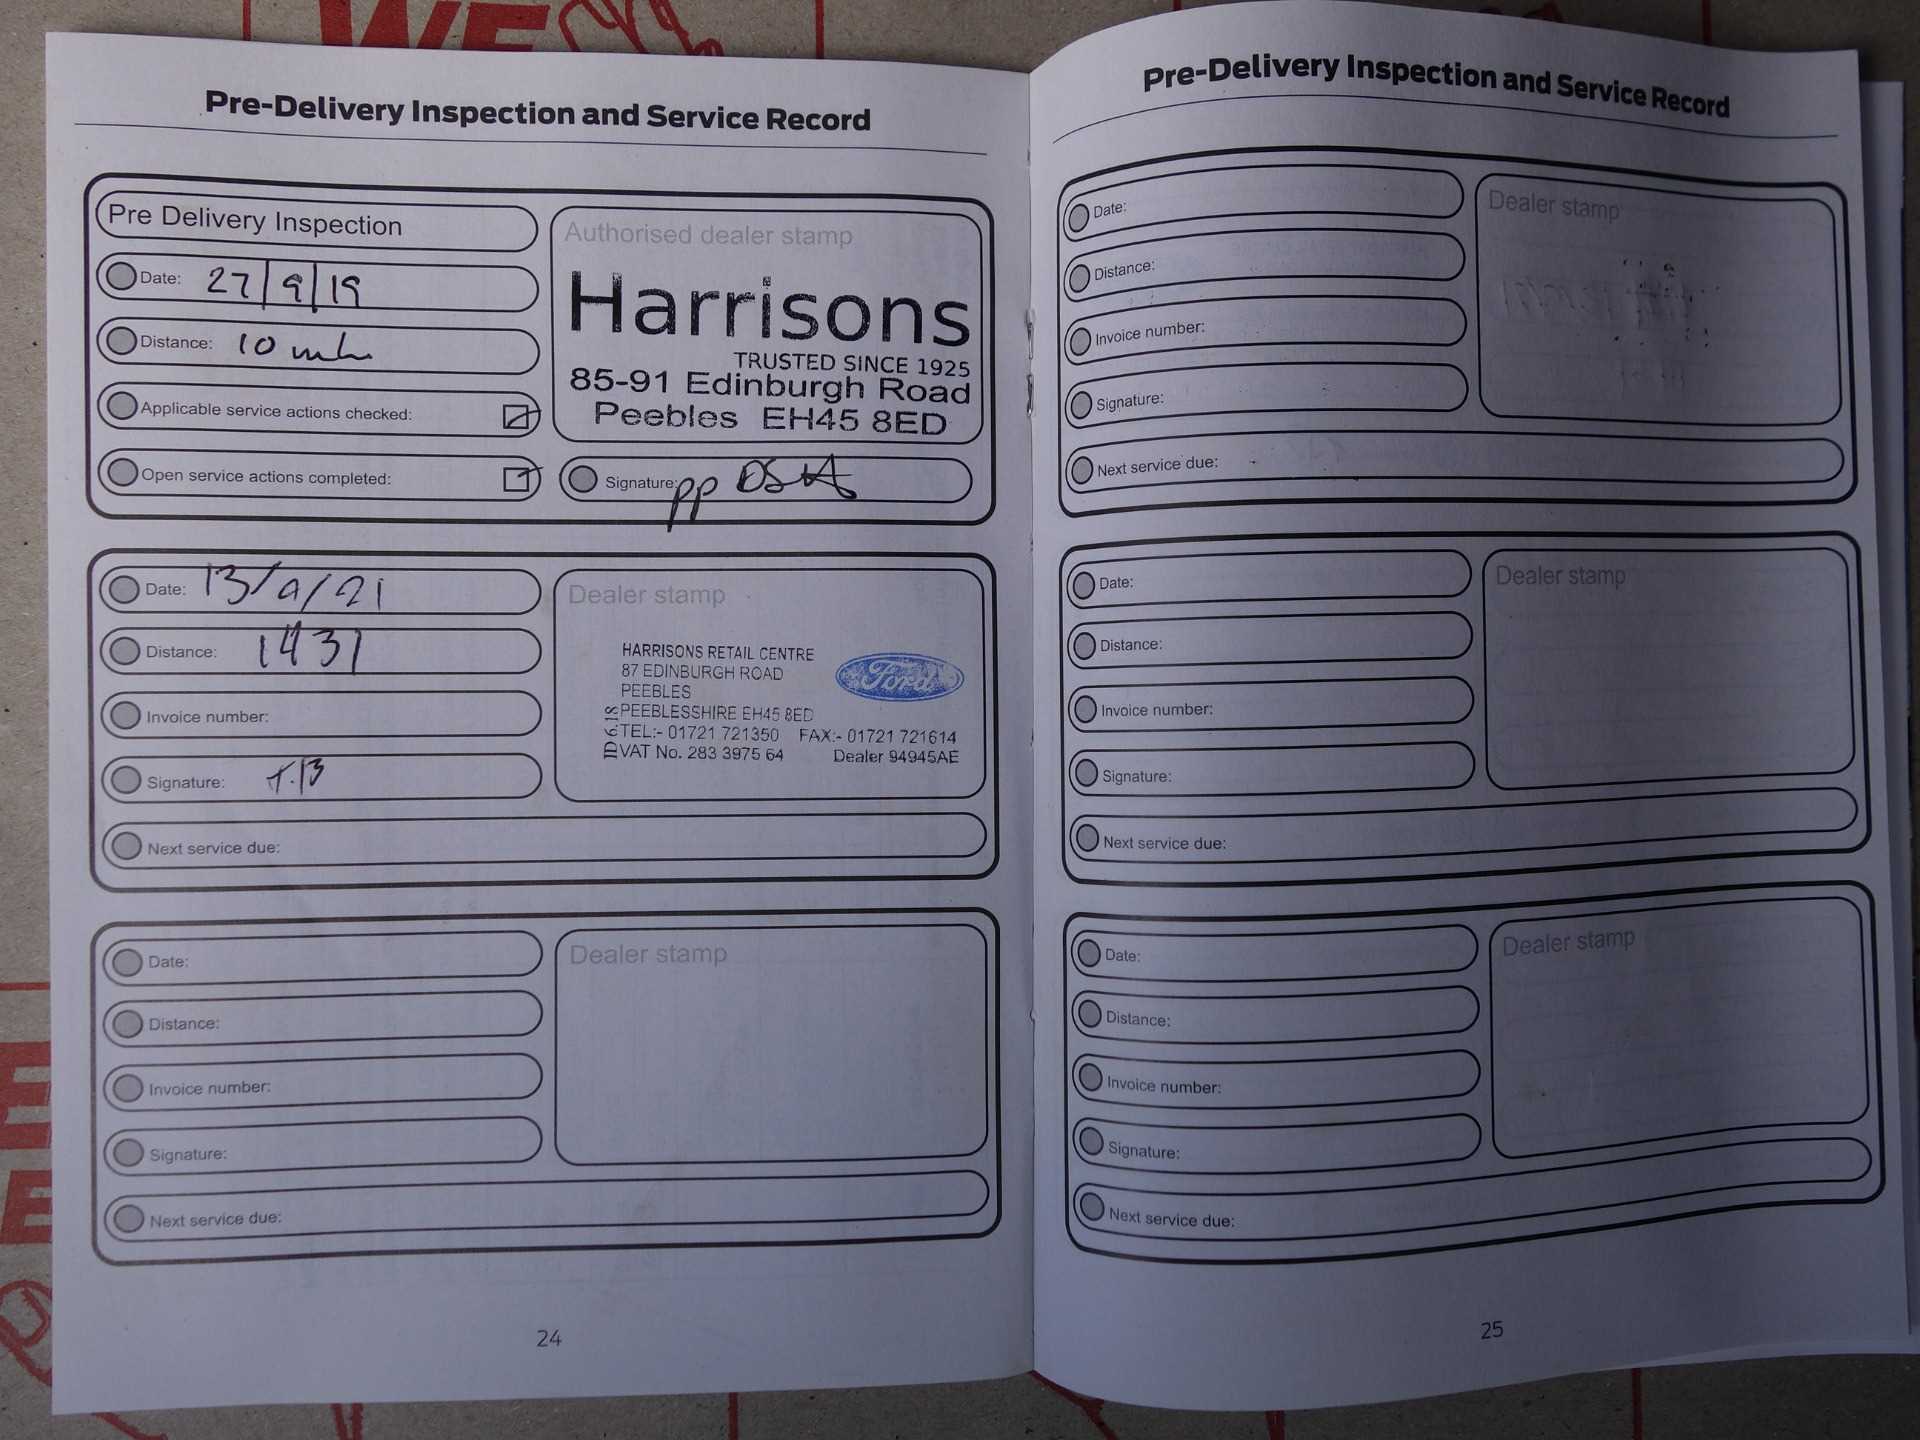 WE
Pre-Delivery Inspection and Service Record
Pre Delivery Inspection
Date: 27/9/19
Distance: 10 mls
Applicable service actions checked:
Open service actions completed:
Authorised dealer stamp
Harrisons
TRUSTED SINCE 1925
85-91 Edinburgh Road
Peebles EH45 8ED
Signature: pp
Date: 13/9/21
Distance: 1431
Invoice number:
Signature: T.B
Next service due:
Dealer stamp
HARRISONS RETAIL CENTRE
87 EDINBURGH ROAD
PEEBLES
PEEBLESSHIRE EH45 8ED
TEL:- 01721 721350 FAX:- 01721 721614
VAT No. 283 3975 64 Dealer 94945AE
ID 6.18
Ford
Date:
Distance:
Invoice number:
Signature:
Next service due:
Dealer stamp
24
Pre-Delivery Inspection and Service Record
Date:
Distance:
Invoice number:
Signature:
Next service due:
Dealer stamp
Date:
Distance:
Invoice number:
Signature:
Next service due:
Dealer stamp
Date:
Distance:
Invoice number:
Signature:
Next service due:
Dealer stamp
25